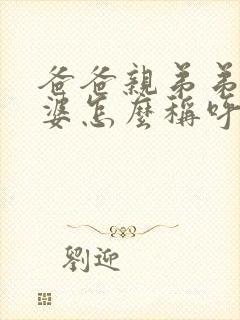 爸爸親弟弟
婆怎麼稱呼
劉迎